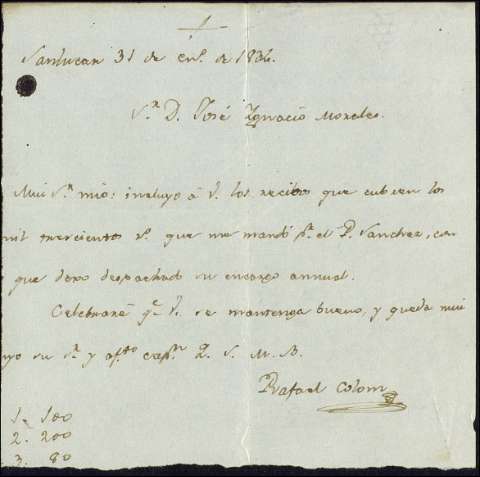 Sanlucar 31 de enº. de 1836.
S.r D. José Ignacio Morales.
Mui S.r mio: incluyo á V. los recibos que cubren los
mil trescientos r.s que me mandó p.r el P. Sanchez, con
que dexo despachado su encargo annual.
Celebraré q.e V. se mantenga bueno, y queda mui
suyo su s.r y af.to cap.n Q. S. M. B.
Rafael Colom
1. 100
2. 200
3. 80